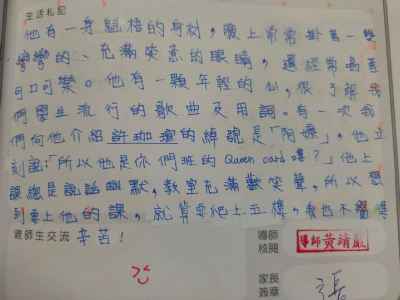 生活札記
他有一身魁梧的身材，臉上常常掛著一雙
彎彎的、充滿笑意的眼睛，還經常喝著
可口可樂。他有一顆年輕的心，很了解我
們學生流行的歌曲及用詞。有一次我
們向他介紹許珈瑄的綽號是「阿嬤」，他立
刻說：「所以他是你們班的Queen card嘍？」他上
課總是詼諧幽默，教室充滿歡笑聲。所以想
到要上他的課，就算要爬上五樓，我也不覺得
辛苦！
親師生交流
導師核閱
導師黃靖
家長簽章
張